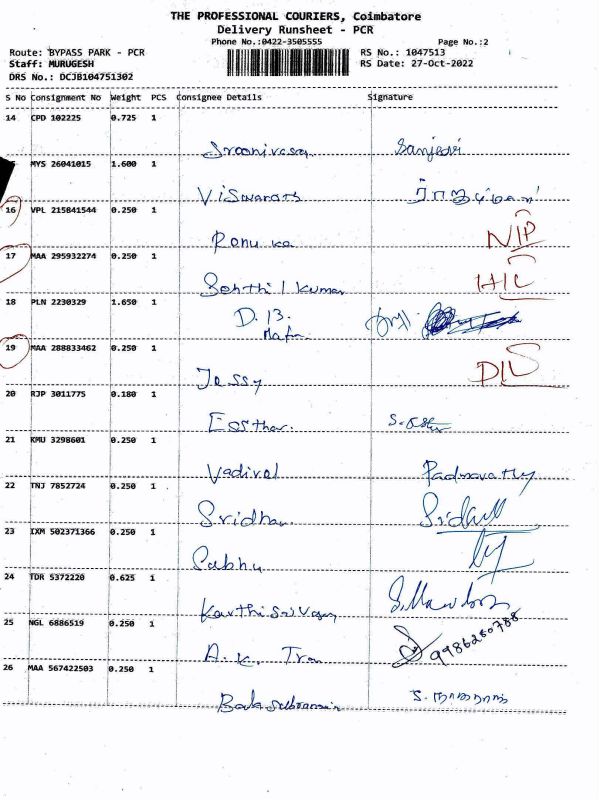 THE PROFESSIONAL COURIERS, Coimbatore
Delivery Runsheet - PCR
Phone No.:0422-3505555 Page No.:2
Route: BYPASS PARK - PCR RS No.: 1047513
Staff: MURUGESH RS Date: 27-Oct-2022
DRS No.: DCJB104751302
S No Consignment No Weight PCS Consignee Details Signature
14 CPD 102225 0.725 1
Sreenivasan Sanjeevi
MYS 26041015 1.600 1
Viswanath
16 VPL 215841544 0.250 1
Renu ka NIP
17 MAA 295932274 0.250 1
Senthil Kumar HIL
18 PLN 2230329 1.650 1
D. B.
19 MAA 288833462 0.250 1
Jessy DLS
20 RJP 3011775 0.180 1
Essther.
21 KMU 3298601 0.250 1
Vadivel Padmavathy
22 TNJ 7852724 0.250 1
Sridhar
23 IXM 502371366 0.250 1
Pabhu
24 TDR 5372220 0.625 1
25 NGL 6886519 0.250 1
A. K. 9986280788
26 MAA 567422503 0.250 1